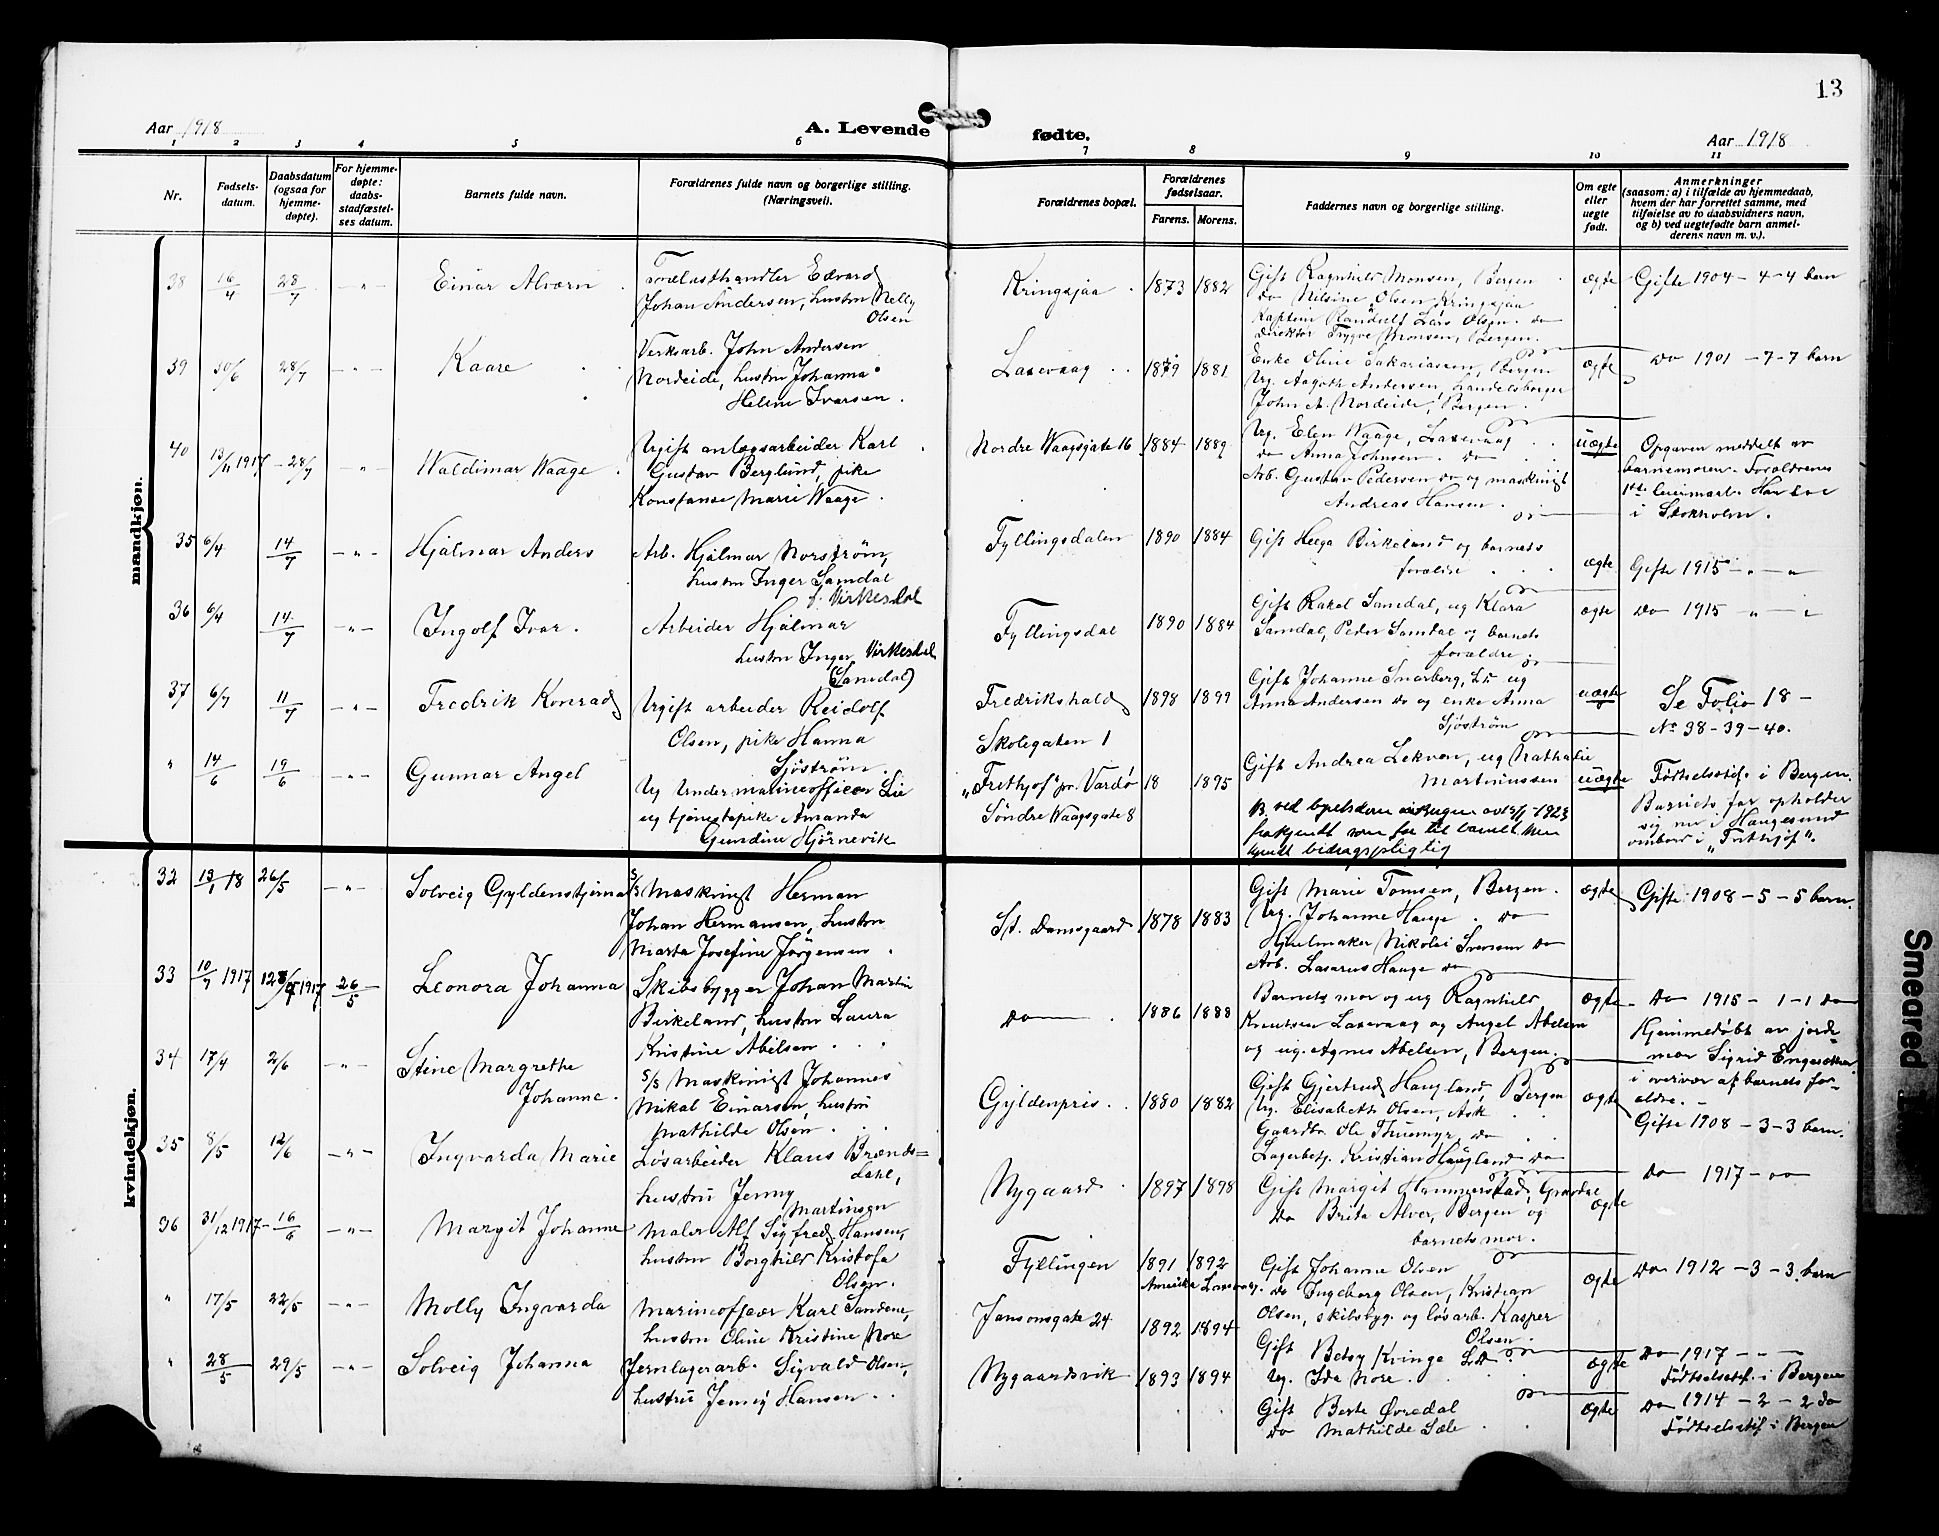 13
Aar 1918
A. Levende fødte.
Aar 1918
1 2 3 4 5 6 7 8 9 10 11
Nr.
Fødsels-
datum.
Daabsdatum
(ogsaa for
hjemme-
døpte).
For hjemme-
døpte:
daabs-
stadfæstel-
ses datum.
Barnets fulde navn.
Forældrenes fulde navn og borgerlige stilling.
(Næringsvei).
Forældrenes bopæl.
Forældrenes
fødselsaar.
Farens. Morens.
Faddernes navn og borgerlige stilling.
Om egte
eller
uegte
født.
Anmerkninger
(saasom: a) i tilfælde av hjemmedaab,
hvem der har forrettet samme, med
tilføielse av to daabsvidners navn,
og b) ved uegtefødte barn anmel-
derens navn m. v.).
mandkjøn.
38 16/4 28/7 - " - Einar Alværn
Trælasthandler Edvard
Johan Andersen, hustru Nelly
Olsen
Kringsjaa 1873 1882
Gift Ragnhild Monsen, Bergen
do Nilsine Olsen Kringsjaa
Kaptein Randulf Lars Olsen do
Direktør Trygve Monsen, Bergen.
ægte
Gifte 1904 - 4 - 4 barn
39 30/6 28/7 - " - Kaare
Verksarb. John Andersen
Nordeide, hustru Johanna
Helene Ivarsen.
Laxevaag 1879 1881
Enke Oline Sakariassen, Bergen
Ug. Aagoth Andersen, Landelsbergen
John A. Nordeide, Bergen.
ægte
Do 1901 - 7 - 7 barn
40 13/11 1917 - 28/7 - " - Waldimar Waage
Ugift anlægsarbeider Karl
Gustav Berglund, pike
Konstanse Marie Waage.
Nordre Waagsgate 16 1884 1889
Ug. Elen Waage, Laxevaag
do Anna Johnsen. do
Arb. Gustav Pedersen do og maskinist
Andreas Hansen.
uægte
Opgaven meddelt av
barnemoren. Forældrenes
1ste leiermaal. Har bo
i Stokholm.
35 6/4 14/7 - " - Hjalmar Anders
Arb. Hjalmar Norstrøm,
hustru Inger Samdal
f. Virkesdal
Fyllingsdalen 1890 1884
Gift Helga Birkeland og barnets
forældre
ægte
Gifte 1915 - " - "
36 6/4 14/7 - " - Ingolf Ivar.
Arbeider Hjalmar
hustru Inger Virkesdal
(Samdal)
Fyllingsdal 1890 1884
Gift Rakel Samdal, ug Klara
Samdal, Peder Samdal og barnets
forældre.
ægte
Do 1915 " - "
37 6/7 11/7 - " - Fredrik Konrad
Ugift arbeider Reidolf
Olsen, pike Hanna
Sjöström.
Fredrikshald
Skolegaten 1
1898 1899
Gift Johanne Snarberg, Lv ug
Anna Andersen do og enke Anna
Sjöström
uægte
Se Folio 18 -
No 38-39-40.
" 14/6 19/6 - " - Gunnar Angel
Ug Undermarineofficer Lie
ug tjenestepike Amanda
Gundine Hjørnevik
"Frithjof" pr. Vardø
Söndre Waagsgate 8
18 1895
Gift Andrea Lekven, ug Nathalie
Martinussen
bidragspligtig
uægte
Fødselsstif. i Bergen.
Barnets far opholder
sig nu i Haugesund
ombord i "Frithjof".
kvindekjøn.
32 13/1 18 26/5 - " - Solveig Gyldenstjerna
S/s Maskinist Herman
Johan Hermansen, hustru
Marta Josefine Jørgensen.
St. Damsgaard 1878 1883
Gift Marie Tomsen, Bergen.
Ug. Johanne Hauge. do
Hjulmaker Nikolai Svensen do
Arb. Lasarus Hauge do
ægte
Gifte 1908 - 5 - 5 barn.
33 10/7 1917 1917 26/5 Leonora Johanna
Skibsbygger Johan Martin
Birkeland, hustru Laura
Kristine Abelsen
Do 1886 1888
Barnets mor og ug Ragnhild
Knutsen Laxevaag og Angel Abelsen
og ug. Agnes Abelsen, Bergen.
ægte
Do 1915 - 1 - 1 Do
Hjemmedøbt av jorde-
mor Sigrid
i overvær af barnets for-
ældre.
34 17/4 2/6 - " - Stine Margrethe
Johanne.
S/s Maskinist Johannes
Mikal Einarsen, hustru
Mathilde Olsen
Gyldenpris 1880 1882
Gift Gjertrud Haugland, Bergen
Ug. Elisabeth Olsen, Ask
Gaardbr. Ole Thuemyr do
Lagerbetj. Kristian Haugland do
ægte
Gifte 1908 - 3 - 3 barn.
35 8/5 12/6 - " - Ingvarda Marie
Løsarbeider Klaus Brænds-
dahl,
hustru Jenny
Martinsen
Nygaard 1897 1898
Gift Margit Hammerstad,
Do Brita Alver, Bergen og
barnets mor.
ægte
Do 1917 - "
36 31/12 1917 - 16/6 - " - Margit Johanne
Maler Alf Sigfred Hansen,
hustru Borghild Kristofa
Olsen.
Fyllingen 1891 1892
Amerika Laxevaag.
Gift Johanne Olsen
do Ingeborg Olsen, Kristian
Olsen, skibsbyg. og løsarb. Kasper
Olsen.
ægte
Do 1912 - 3 - 3 barn
" 17/5 22/5 - " - Molly Ingvarda
Marineofficer Karl Sandene,
hustru Oline Kristine Nore
Jansonsgate 24 1892 1894
Gift Betsy Kvinge Ld.
Ug. Ida Nore.
ægte
Do 1917 - - -
Fødselsstif. i Bergen
" 28/5 29/5 - " - Solveig Johanna
Jernlagerarb. Sigvald Olsen,
hustru Jenny Hansen
Nygaardsvik 1893 1894
Gift Berte Øvredal
Do Mathilde Sæle
ægte
Do 1914 - 2 - 2 do
Fødselsstif. i Bergen
Smeared